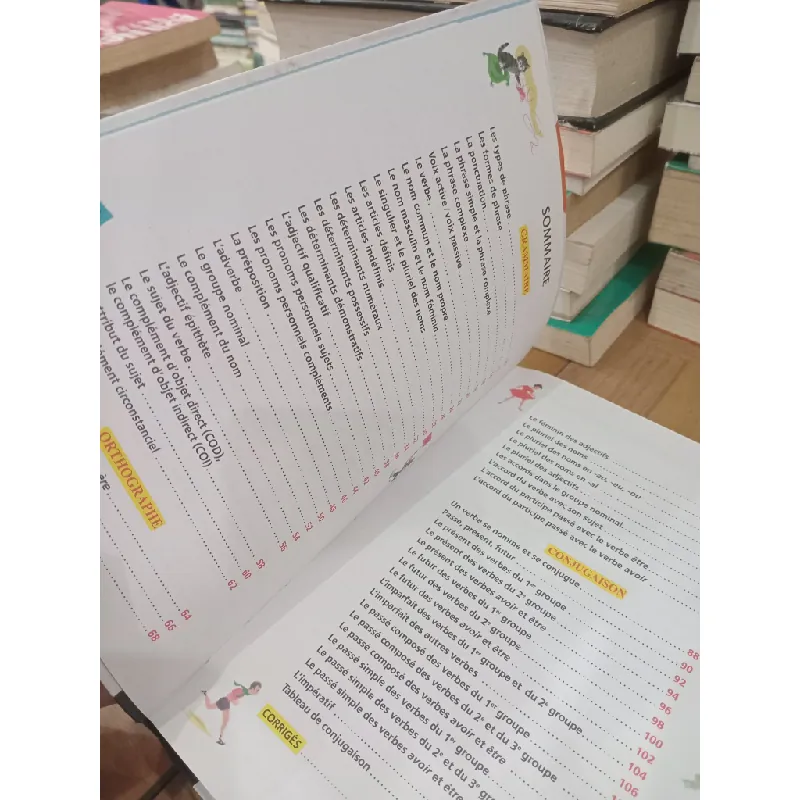 SOMMAIRE
GRAMMAIRE
Les types de phrase
Les formes de phrase
La ponctuation
La phrase simple et la phrase complexe
La phrase complexe
Voix active / voix passive
Le verbe
Le nom commun et le nom propre
Le nom masculin et le nom féminin
Le singulier et le pluriel des noms
Les articles définis
Les articles indéfinis
Les déterminants numéraux
Les déterminants possessifs
Les déterminants démonstratifs
L'adjectif qualificatif
Les pronoms personnels sujets
Les pronoms personnels compléments
La préposition
L'adverbe
Le groupe nominal
Le complément du nom
L'adjectif épithète
Le sujet du verbe
Le complément d'objet direct (COD),
le complément d'objet indirect (COI)
tribut du sujet
ément circonstanciel
48
50
52
54
56
58
60
62
ORTHOGRAPHE
64
66
68
Le féminin des adjectifs
Le pluriel des noms
Le pluriel des noms en -au, -eu, -ou
Le pluriel des noms en -al
Le pluriel des adjectifs
Les accords dans le groupe nominal
L'accord du verbe avec son sujet
L'accord du participe passé avec le verbe être
L'accord du participe passé avec le verbe avoir
CONJUGAISON
Un verbe se nomme et se conjugue
Passé, présent, futur
Le présent des verbes du 1er groupe
Le présent des verbes du 2e groupe
Le présent des verbes avoir et être
Le futur des verbes du 1er groupe
Le futur des verbes du 2e groupe
Le futur des verbes avoir et être
L'imparfait des verbes du 1er groupe et du 2e groupe
L'imparfait des autres verbes
Le passé composé des verbes du 1er groupe
Le passé composé des verbes du 2e et du 3e groupe
Le passé composé des verbes avoir et être
Le passé simple des verbes du 1er groupe
Le passé simple des verbes du 2e et du 3e groupe
Le passé simple des verbes avoir et être
L'impératif
Tableau de conjugaison
88
90
92
94
96
98
100
102
104
106
CORRIGÉS